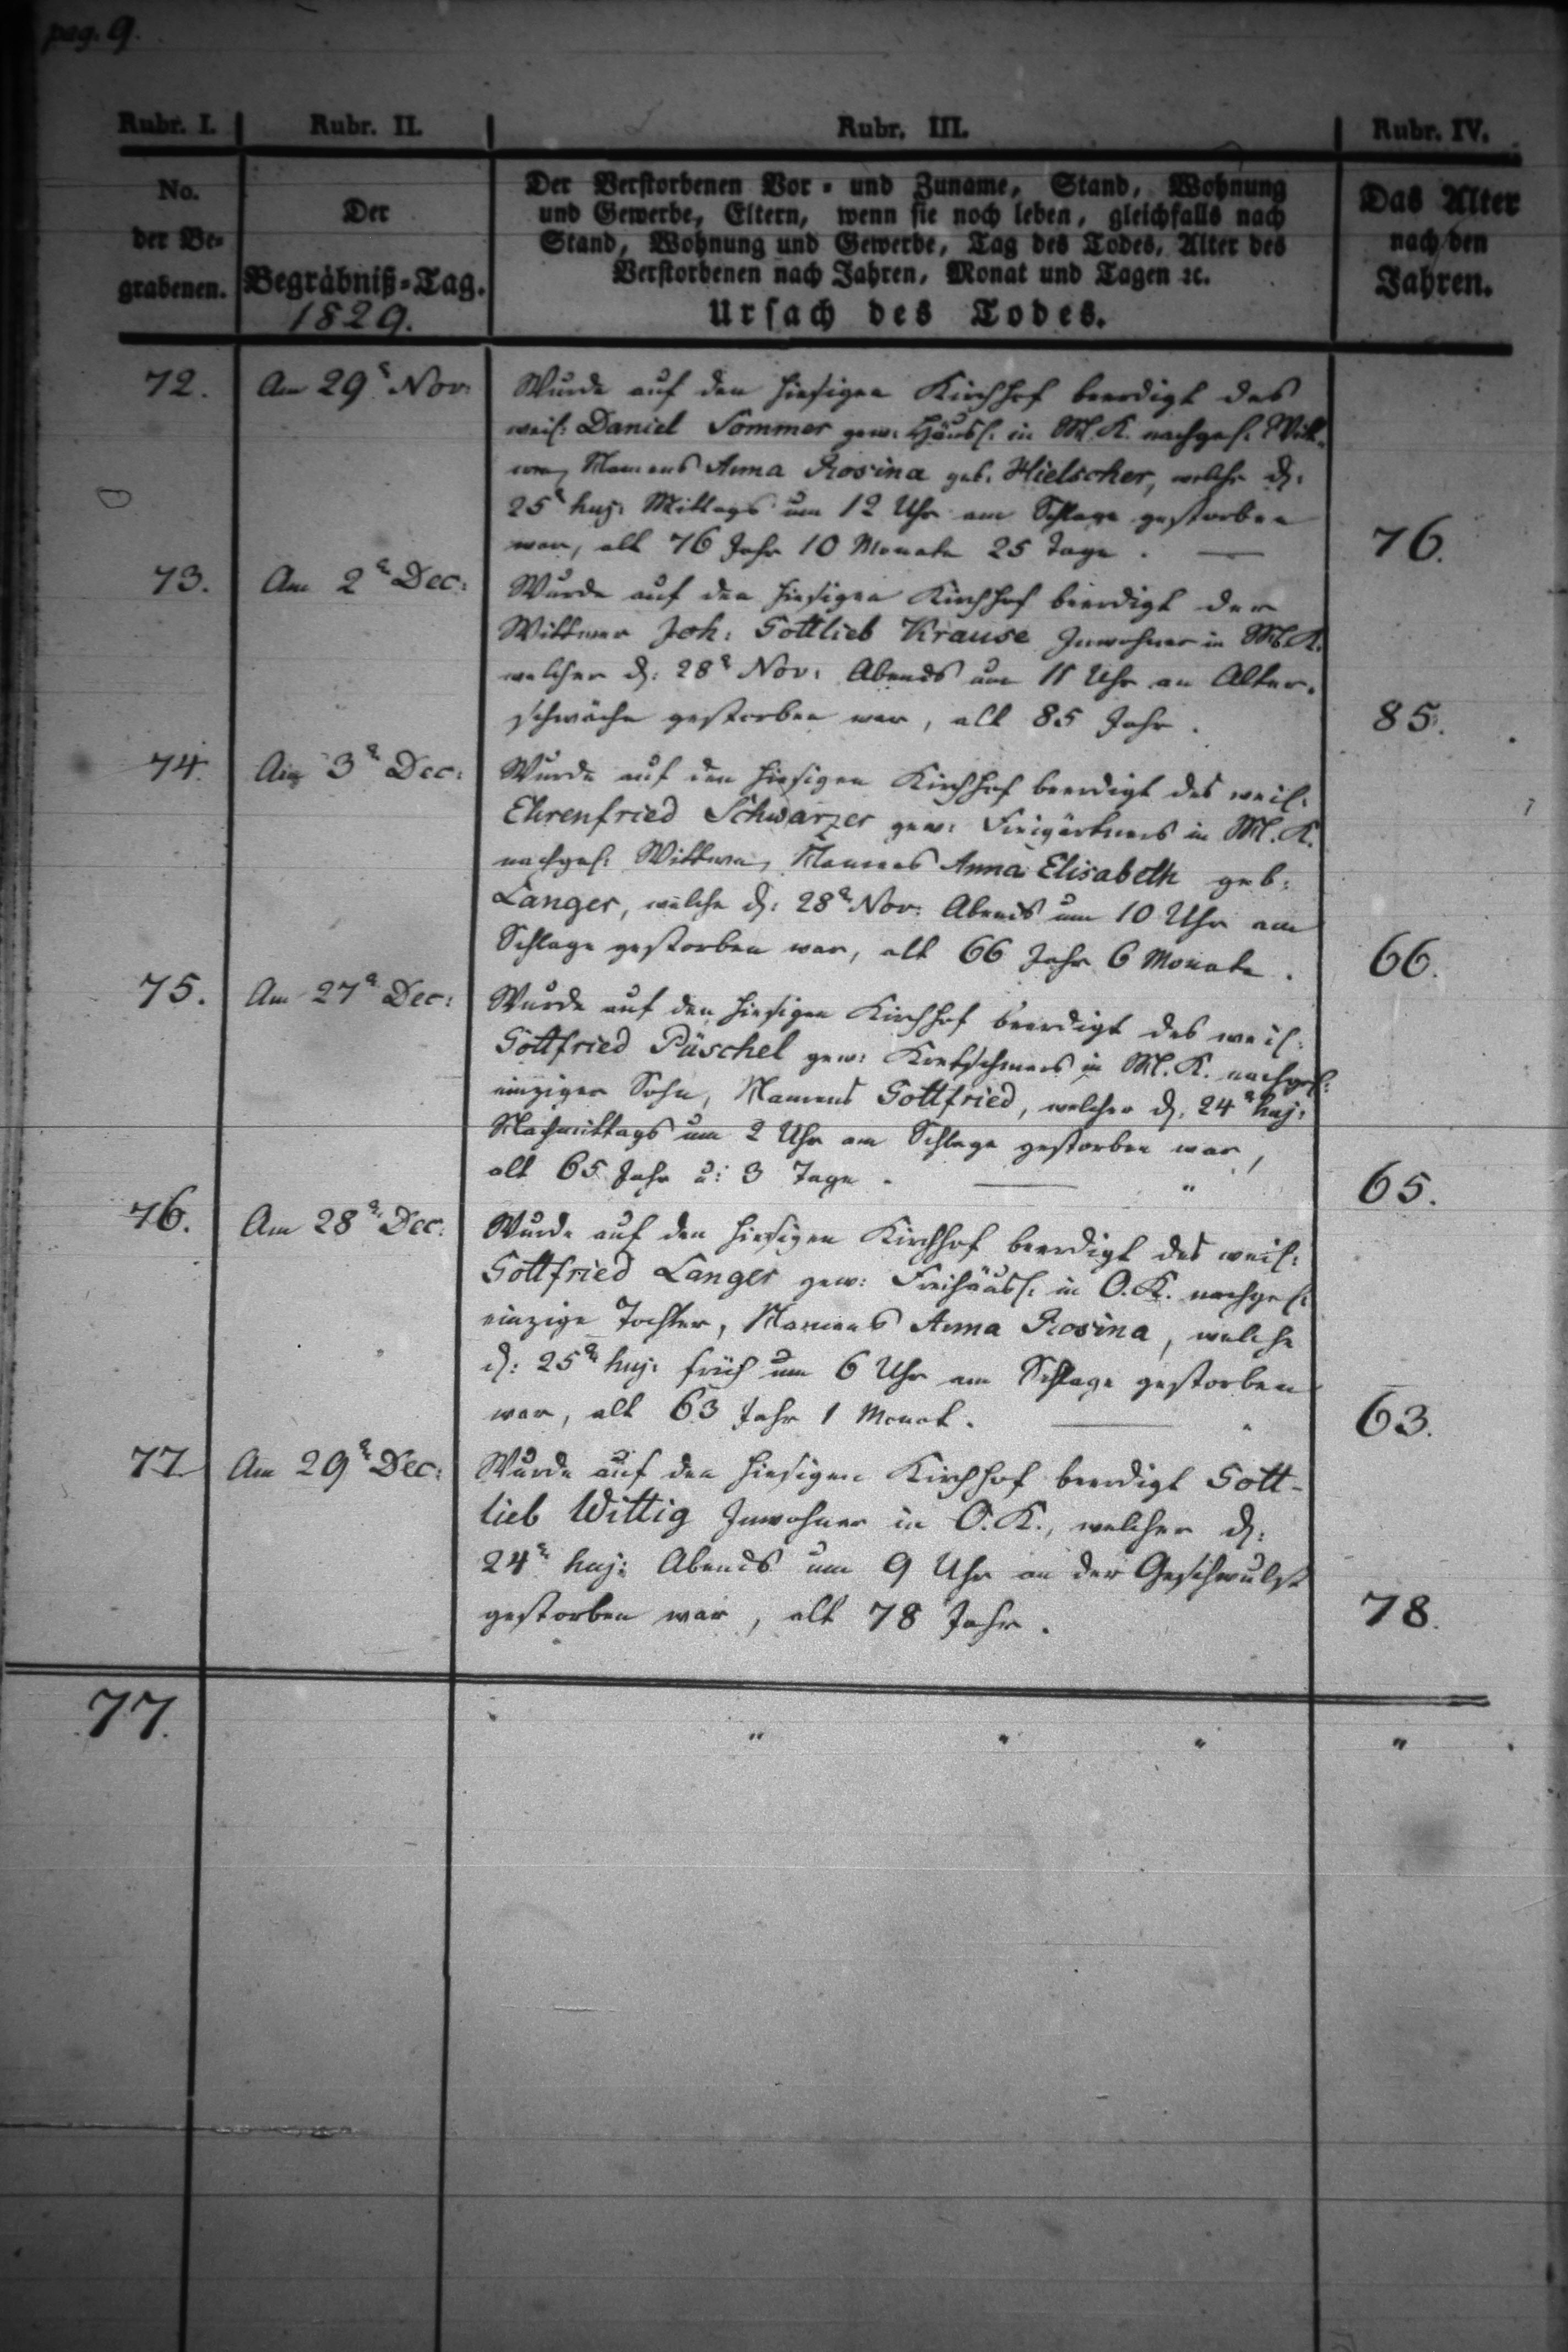 pag. 9.
Rubr. I. Rubr. II. Rubr. III. Rubr. IV.
No. der Be- grabenen.
Der Begräbniß-Tag.
1829.
Der Verstorbenen Vor- und Zuname, Stand, Wohnung
und Gewerbe, Eltern, wenn sie noch leben, gleichfalls nach
Stand, Wohnung und Gewerbe, Tag des Todes, Alter des
Verstorbenen nach Jahren, Monat und Tagen ꝛc.
Ursach des Todes.
Das Alter
nach den
Jahren.
72. Am 29t Nov: Wurde auf den hiesigen Kirchhof beerdigt des
weil: Daniel Sommer gew: Häusl: in M. K. nachgel: Witt-
we, Namens Anna Rosina geb: Hielscher, welche d:
25t huj: Mittags um 12 Uhr am Schlage gestorben
war, alt 76 Jahr 10 Monate 25 Tage. — 76.
73. Am 2ten Dec: Wurde auf den hiesigen Kirchhof beerdigt der
Wittwer Joh: Gottlieb Krause Inwohner in M. K.
welcher d: 28t Nov: Abends um 11 Uhr an Alter-
schwäche gestorben war, alt 85 Jahr. 85.
74. Am 3ten Dec: Wurde auf den hiesigen Kirchhof beerdigt des weil:
Ehrenfried Schwarzer gew: Freigärtners in M. K.
nachgel: Wittwe, Namens Anna Elisabeth geb:
Langer, welche d: 28ten Nov: Abends um 10 Uhr am
Schlage gestorben war, alt 66 Jahr 6 Monate. 66.
75. Am 27ten Dec: Wurde auf den hiesigen Kirchhof beerdigt des weil:
Gottfried Püschel gew: Kretschmers in M. K. nachgel:
einziger Sohn, Namens Gottfried, welcher d: 24ten huj:
Nachmittags um 2 Uhr am Schlage gestorben war,
alt 65 Jahr u: 3 Tage. — " 65.
76. Am 28ten Dec: Wurde auf den hiesigen Kirchhof beerdigt des weil:
Gottfried Langer gew: Freihäusl: in O. K. nachgel:
einzige Tochter, Namens Anna Rosina, welche
d: 25ten huj: früh um 6 Uhr am Schlage gestorben
war, alt 63 Jahr 1 Monat. — " 63.
77. Am 29ten Dec: Wurde auf den hiesigen Kirchhof beerdigt Gott-
lieb Wittig Inwohner in O. K., welcher d:
24ten huj: Abends um 9 Uhr an der Geschwulst
gestorben war, alt 78 Jahr. 78.
77. " " " "